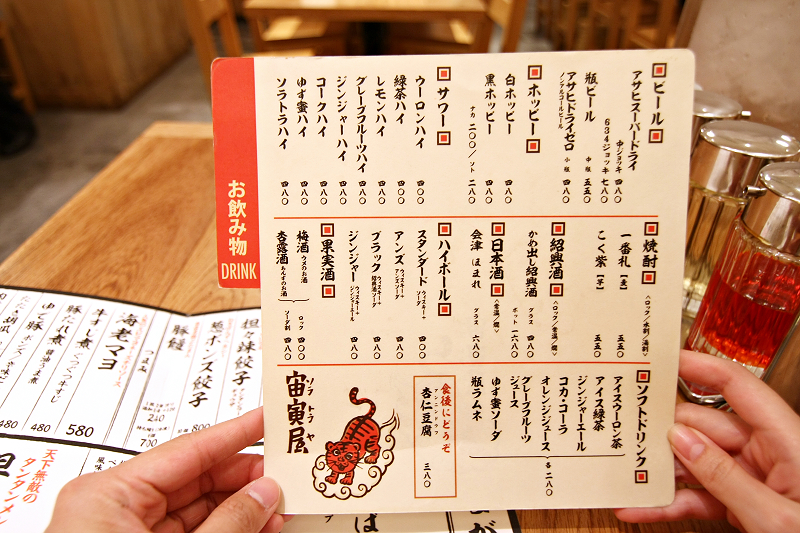 お飲み物
DRINK
ビール
アサヒスーパードライ
中ジョッキ 四八〇
634ジョッキ 七八〇
瓶ビール
中瓶 五五〇
アサヒドライゼロ
ノンアルコールビール
小瓶 四八〇
ホッピー
白ホッピー 四八〇
黒ホッピー 四八〇
ナカ 二〇〇/ソト 二八〇
サワー
ウーロンハイ 四〇〇
緑茶ハイ 四〇〇
レモンハイ 四八〇
グレープフルーツハイ 四八〇
ジンジャーハイ 四八〇
コークハイ 四八〇
ゆず蜜ハイ 四八〇
ソラトラハイ 四八〇
焼酎
〈ロック/水割/湯割〉
一番札【麦】 五五〇
こく紫【芋】 五五〇
紹興酒
〈ロック/常温/燗〉
かめ出し紹興酒
グラス 四八〇
ボット 一六八〇
日本酒
〈常温/燗〉
会津ほまれ
グラス 六八〇
ハイボール
スタンダード ウィスキー+ソーダ 四〇〇
アンズ ウィスキー+アンズソーダ 四八〇
ブラック ウィスキー+紹興酒ソーダ 四八〇
ジンジャー ウィスキー+ジンジャーエール 四八〇
果実酒
梅酒 ウメのお酒
杏露酒 あんずのお酒
ロック 四八〇
ソーダ割 四八〇
ソフトドリンク
アイスウーロン茶
アイス緑茶
ジンジャーエール
コカ・コーラ
オレンジジュース
グレープフルーツ
ジュース
ゆず蜜ソーダ
瓶ラムネ
各 二八〇
食後にどうぞ
アンニンドウフ
杏仁豆腐
三八〇
ソラトラヤ
宙寅屋
担々辣餃子
ポンズ餃子
豚饅
海老マヨ
牛すじ煮
豚たれ煮
ゆで豚
480
480
580
800
700
天下無敵の
タンタンメン